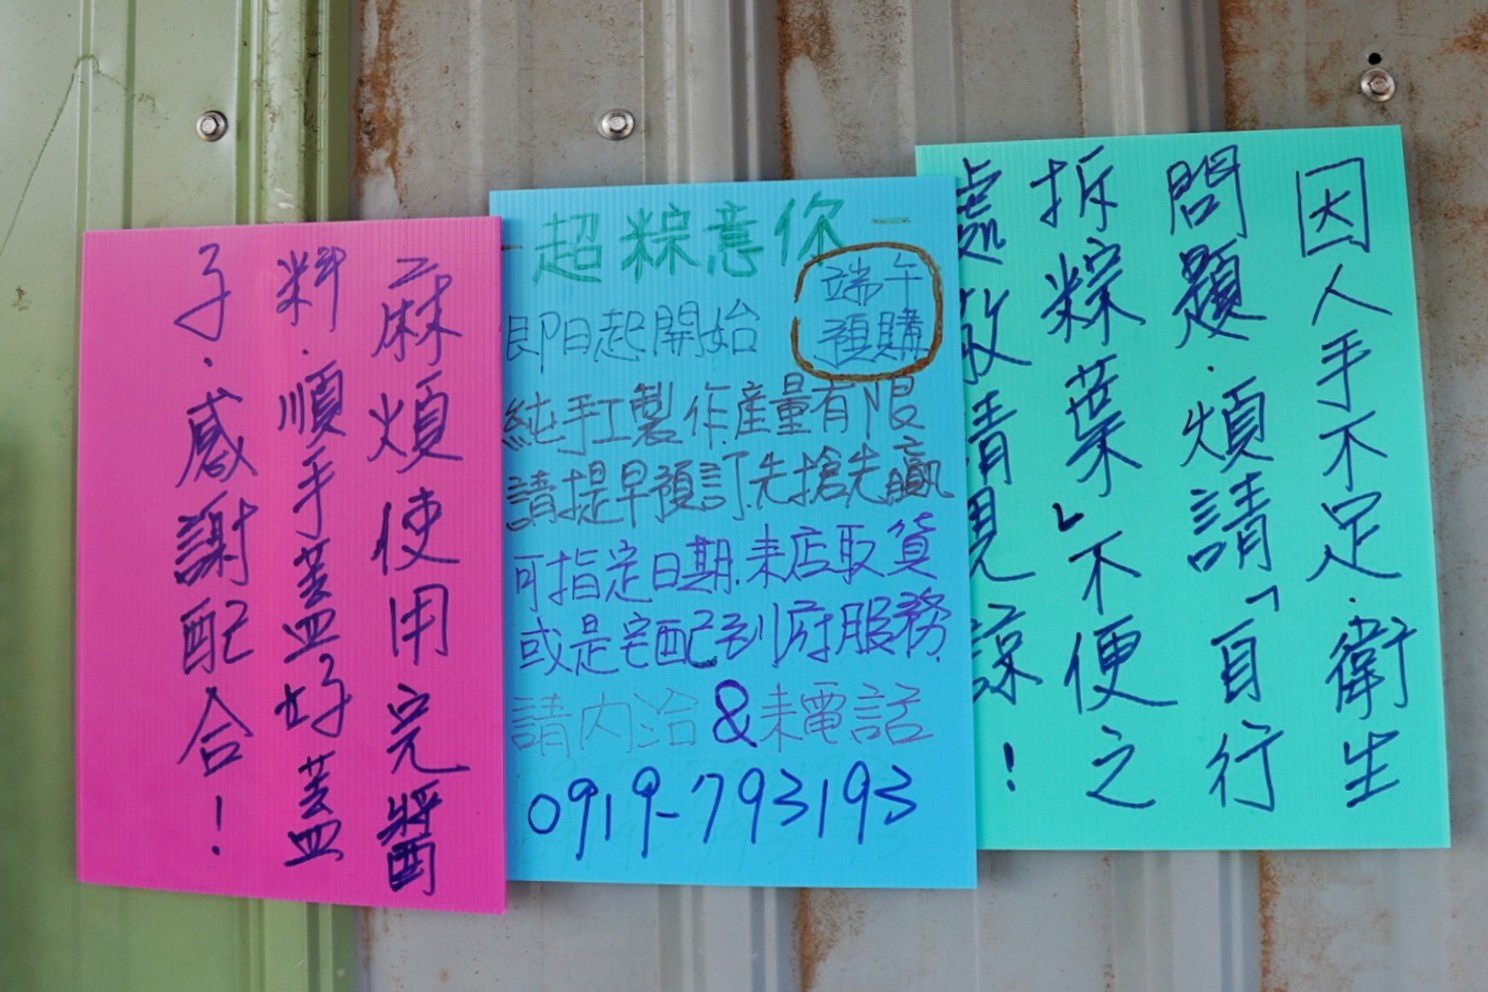 麻煩使用完醬
料.順手蓋好蓋
子.感謝配合!
-超粽意你-
端午
預購
即日起開始
純手工製作.產量有限
請提早預訂.先搶先贏
可指定日期.來店取貨
或是宅配到府服務.
請內洽&來電話
0919-793193
因人手不足.衛生
問題.煩請「自行
拆粽葉」不便之
處敬請見諒!